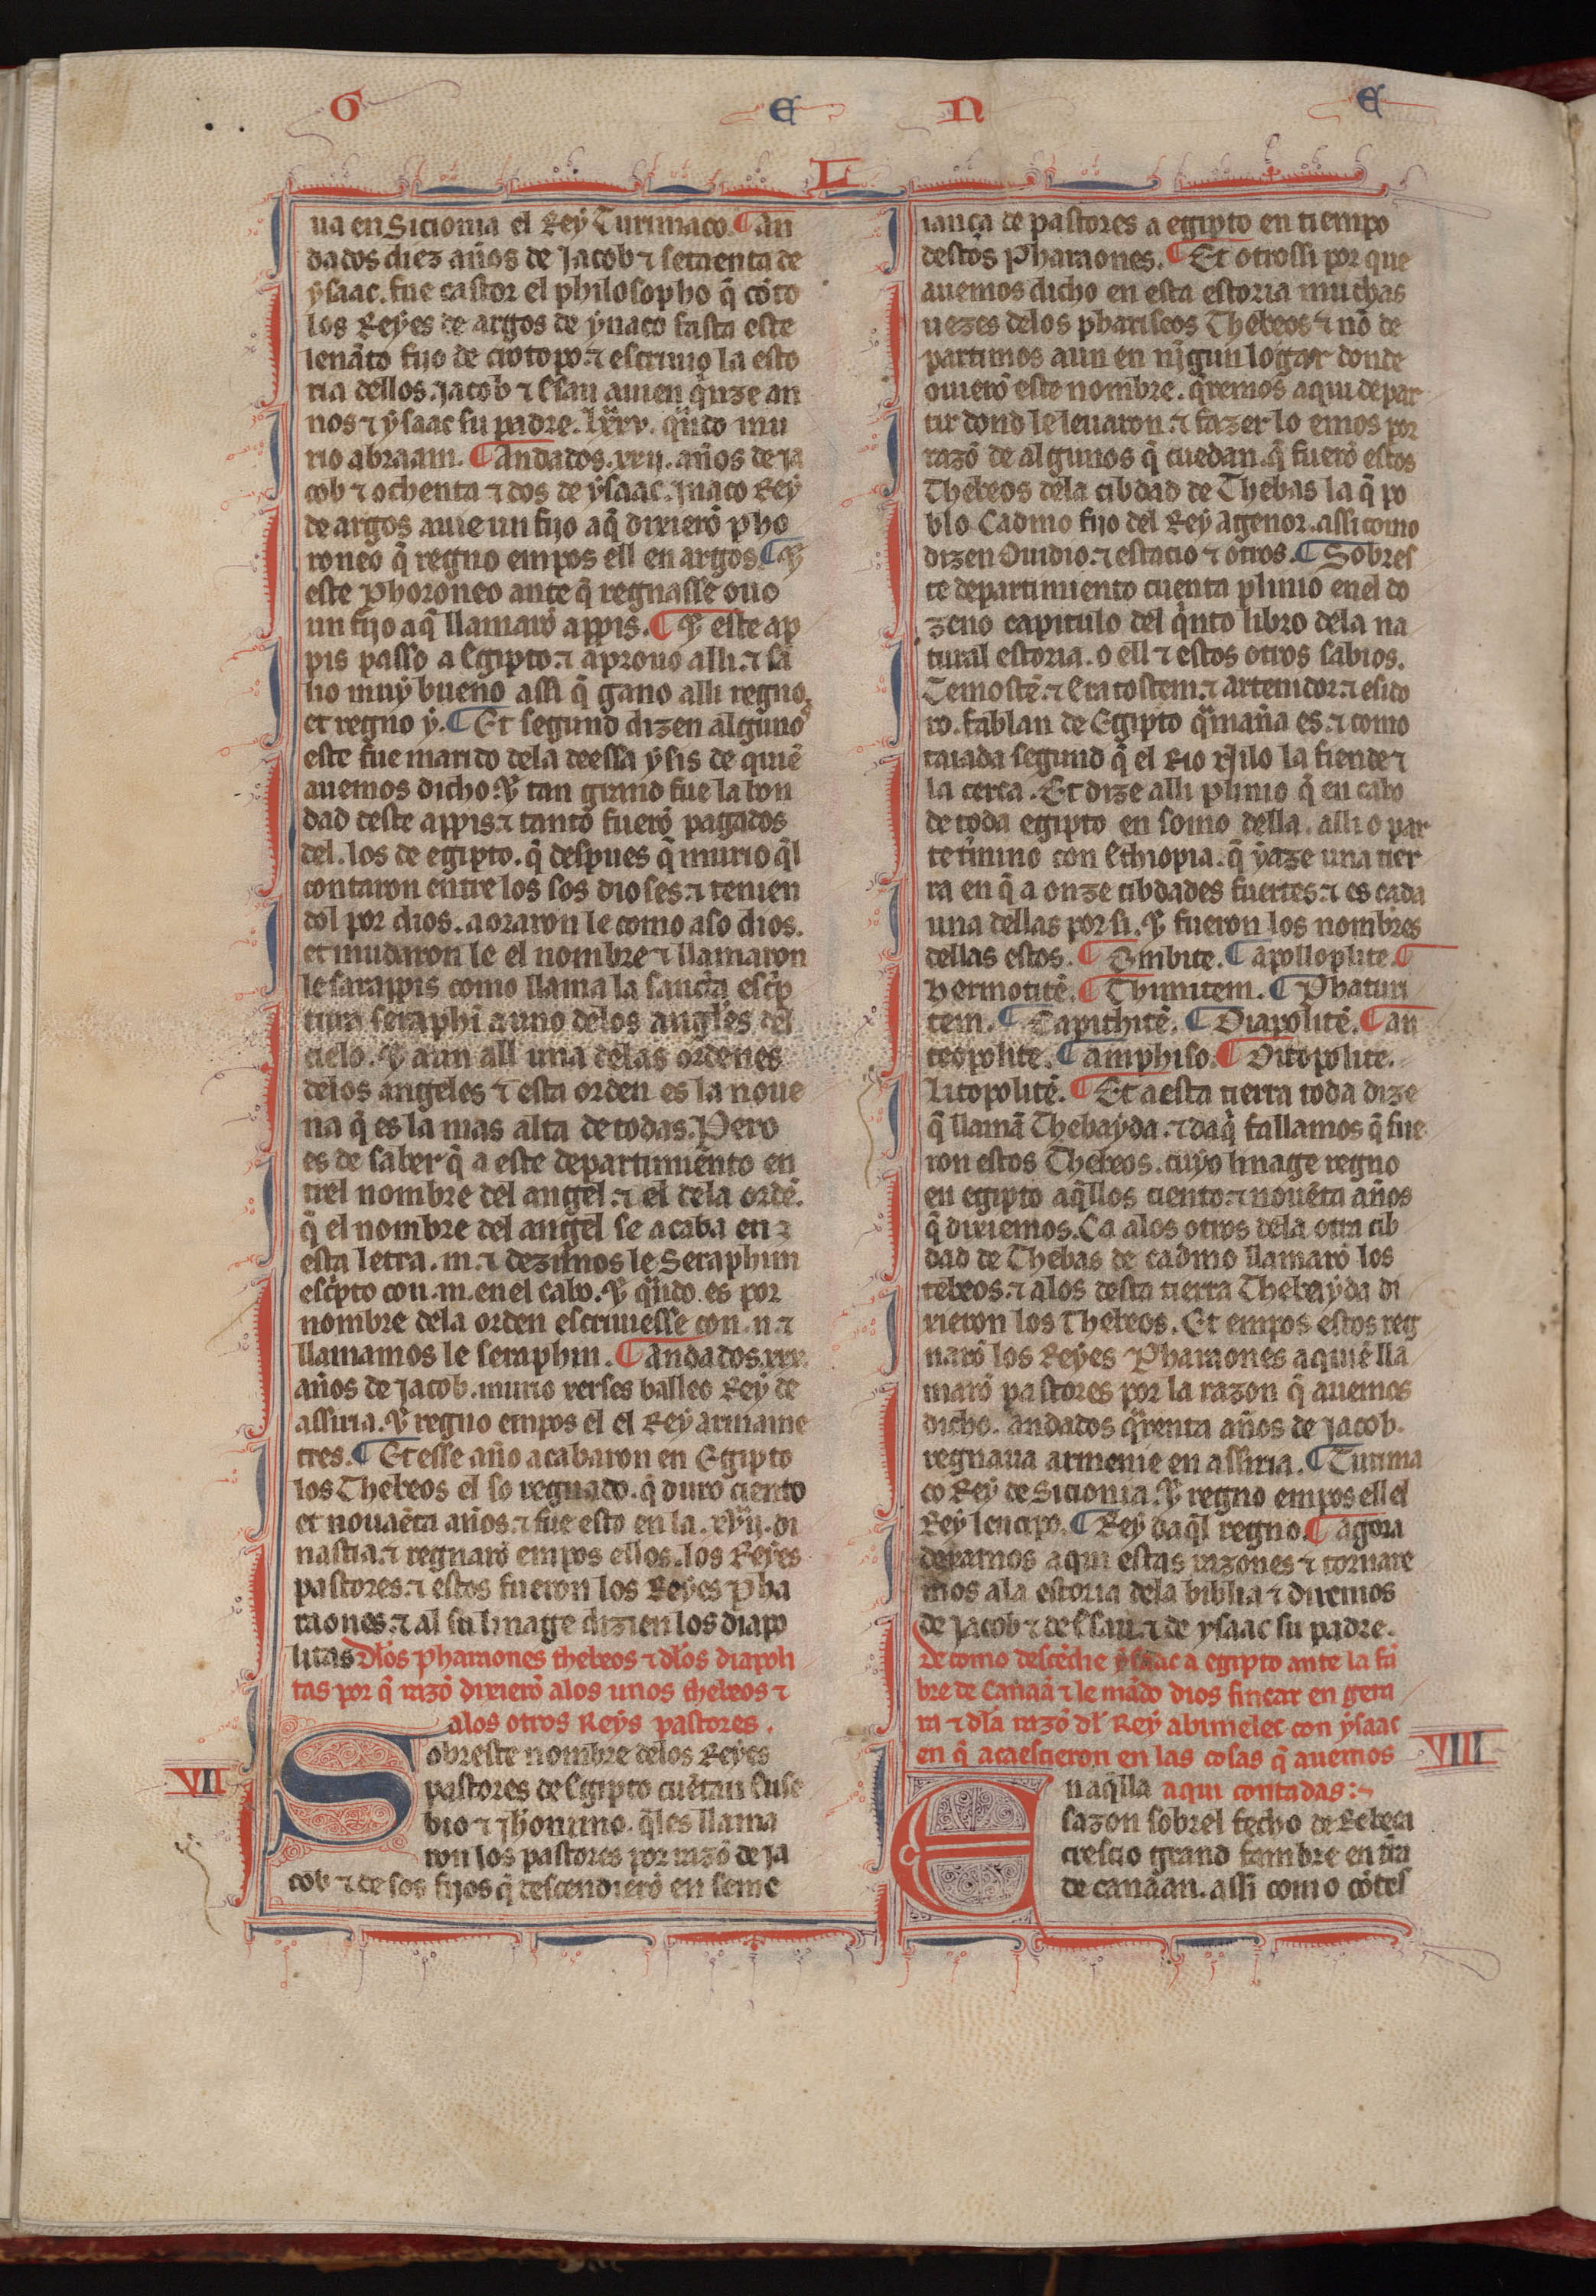 G E N E
L
ua en Sicionia el Rey Turimaco. ¶ An
dados diez años de Jacob ⁊ setaenta de
ysaac. fue castor el philosopho q̃ cõto
los Reyes de argos de ynaco fasta este
lenãto fijo de crotopo. ⁊ escriuio la esto
ria dellos. Jacob ⁊ Esau auien q̃nze an
nos ⁊ ysaac su padre. lxxv. qñdo mu
rio abraam. ¶ Andados. xxij. años de Ja
cob ⁊ ochenta ⁊ dos de ysaac. ynaco Rey
de argos auie un fijo aq̃ dixierõ pho
roneo q̃ regno empos ell en argos. ¶ Y
este Phoroneo ante q̃ regnasse ouo
un fijo aq̃ llamarõ appis. ¶ Y este ap
pis passo a Egipto. ⁊ aprouo alli. ⁊ sa
lio muy bueno assi q̃ gano alli regno.
et regno y. ¶ Et segund dizen algunos
este fue marido dela deessa ysis de quiẽ
auemos dicho. Y tan grand fue la bon
dad deste appis. ⁊ tanto fuerõ pagados
del. los de egipto. q̃ despues q̃ murio q̃l
contaron entre los sos dioses. ⁊ tenien
dol por dios. aoraron le como a so dios.
et mudaron le el nombre ⁊ llamaron
le sarappis como llama la sancta esc̃p
tura seraphĩ a uno delos angl̃es del
cielo. Y aun all una delas ordenes
delos angeles ⁊ esta orden es la noue
na q̃ es la mas alta de todas. Pero
es de saber q̃ a este departimiẽnto en
trel nombre del angel. ⁊ el dela ordẽ.
q̃ el nombre del angel se acaba en
esta letra. m. ⁊ dezimos le Seraphim
esc̃pto con. m. en el cabo. Y qñdo. es por
nombre dela orden escriuesse con. n. ⁊
llamamos le seraphin. ¶ Andados. xxx.
años de Jacob. murio xerses balleo Rey de
assiria. Y regno empos el el Rey armame
tres. ¶ Et esse año acabaron en Egipto
los Thebeos el so regnado. q̃ duro ciento
et nouaẽta años. ⁊ fue esto en la. xvij. di
nastia. ⁊ regnarõ empos ellos. los Reyes
pastores. ⁊ estos fueron los Reyes Pha
raones. ⁊ al su linage dizien los diapo
litas Dl̃os Pharaones thebeos ⁊ dl̃os diapoli
tas por q̃ razõ dixierõ alos unos thebeos ⁊
alos otros Reys pastores.
VII
Sobreste nombre delos Reyes
pastores de Egipto cuẽtan Euse
bio ⁊ Jheronimo. q̃les llama
ron los pastores por razõ de Ja
cob ⁊ de sos fijos q̃ descendierõ en seme
iança de pastores a egipto en tiempo
destos Pharaones. ¶ Et otrossi por que
auemos dicho en esta estoria muchas
uezes delos phariseos Thebeos ⁊ nõ de
partimos aun en nĩgun logar donde
ouierõ este nombre. q̃remos aqui depar
tir dond le leuaron. ⁊ fazer lo emos por
razõ de algunos q̃ cuedan. q̃ fuerõ estos
Thebeos dela cibdad de Thebas la q̃ po
blo Cadmo fijo del Rey Agenor. assi como
dizen Ouidio. ⁊ estacio ⁊ otros. ¶ Sobres
te departimiento cuenta plinio en el do
zeno capitulo del q̃nto libro dela na
tural estoria. o ell ⁊ estos otros sabios.
Temostẽ. ⁊ Eratostem. ⁊ artemidor. ⁊ esido
ro. fablan de Egipto q̃maña es. ⁊ como
taiada segund q̃ el rio Nilo la fiende ⁊
la cerca. Et dize alli plinio q̃ en cabo
de toda egipto en somo della. alli o par
te t̃mino con Ethiopia. q̃ yaze una tier
ra en q̃ a onze cibdades fuertes. ⁊ es cada
una dellas por si. Y fueron los nombres
dellas estos. ¶ Ombite. ¶ Apollopolite. ¶
Hermotitẽ. ¶ Thinitem. ¶ Phaturi
tem. ¶ Capithitẽ. ¶ Diapolitẽ. ¶ An
teopolite. ¶ Amphiso. ¶ Ditopolite.
Litopolitẽ. ¶ Et aesta tierra toda dize
q̃ llamã Thebayda. ⁊ daq̃ fallamos q̃ fue
ron estos Thebeos. cuyo linage regno
en egipto aq̃llos ciento. ⁊ nouẽta años
q̃ dixiemos. Ca alos otros dela otra cib
dad de Thebas de cadmo llamarõ los
tebeos. ⁊ alos desta tierra Thebayda di
xieron los Thebeos. Et empos estos reg
narõ los Reyes Pharaones aquiẽ lla
marõ pastores por la razon q̃ auemos
dicho. Andados q̃renta años de Jacob.
regnaua armenie en assiria. ¶ Turima
co Rey de Sicionia. Y regno empos ell el
Rey lencipo. ¶ Rey daq̃l regno. ¶ Agora
dexamos aqui estas razones ⁊ tornare
mos ala estoria dela biblia ⁊ diremos
de Jacob ⁊ de Esau. ⁊ de ysaac su padre.
De como descẽdie ysaac a egipto ante la fã
bre de Canaã ⁊ le mãdo dios fincar en gera
ra ⁊ dl̃a razõ dl̃ Rey abimelec con ysaac
en q̃ acaescieron en las cosas q̃ auemos
aqui contadas:~
VIII
En aq̃lla
sazon sobrel fecho de Rebeca
crescio grand fambre en tr̃a
de canaan. assi como cõtes